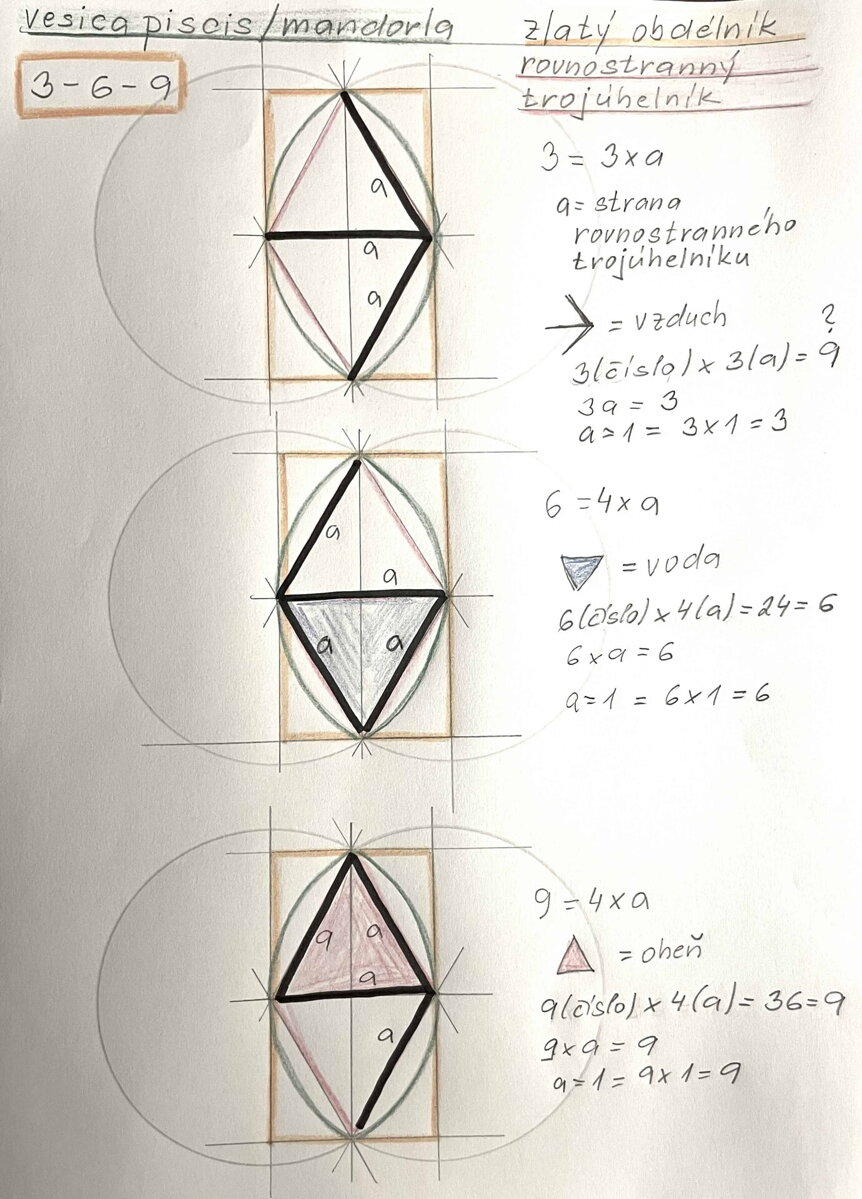 vesica piscis/mandorla
zlatý obdélník
rovnostranný
trojúhelník
3-6-9
3 = 3xa
a= strana
rovnostranného
trojúhelníku
= vzduch
?
3(číslo) x 3(a) = 9
3a = 3
a=1 = 3x1=3
a
a
a
6 =4xa
= voda
6(číslo)x4(a)=24=6
6xa=6
a=1 = 6x1=6
a
a
a a
9=4xa
= oheň
9(číslo)x4(a)=36=9
9xa=9
a=1=9x1=9
a a
a
a